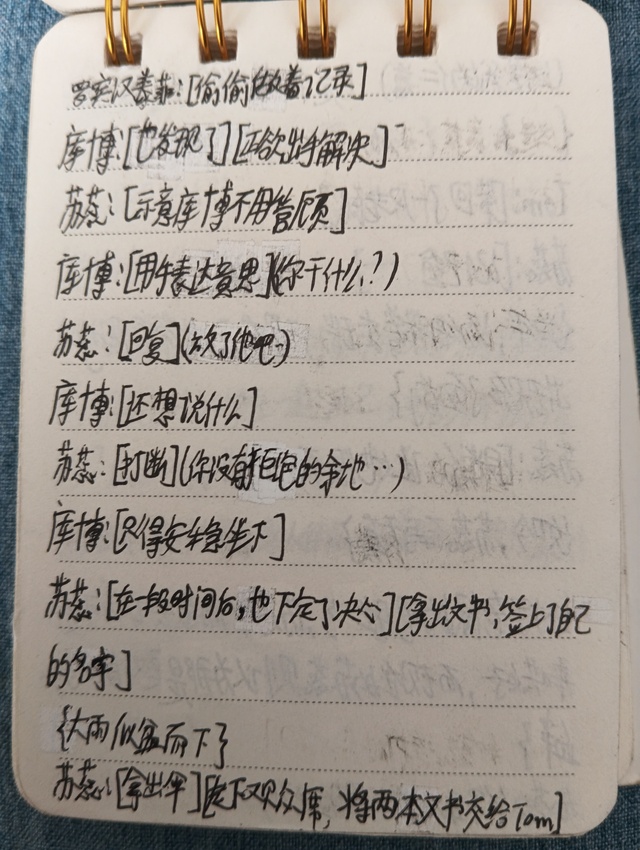 罗宾汉泰菲:[偷偷做着记录]
库博:[也发现了][正欲出手解决]
苏蕊:[示意库博不用管顾]
库博:[用手表达意思](你干什么?)
苏蕊:[回复](放了他吧)
库博:[还想说什么]
苏蕊:[打断](你没有拒绝的余地…)
库博:[只得安生坐下]
苏蕊:[在一段时间后,也下定了决心][拿出文书,签上了自己
的名字]
{大雨倾盆而下}
苏蕊:[拿出伞][走下观众席,将两本文书交给Tom]